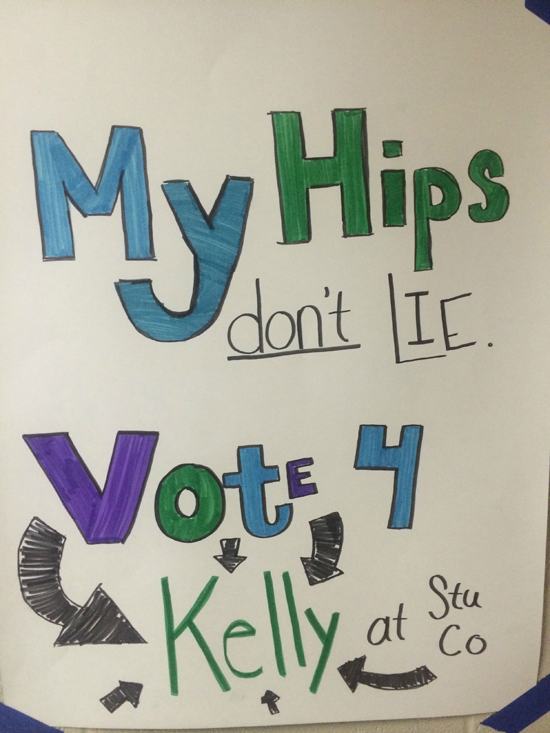 My Hips
don't LIE.
VotE 4
Kelly at Stu
Co